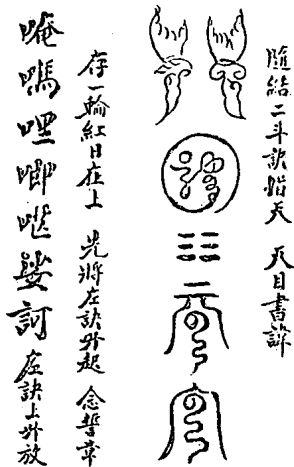 隨結二斗訣指天 天目書諱
存一輪紅日在上 先將左訣外起 念誓章
唵嗎唧娑訶 左訣上外放